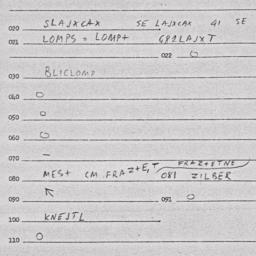 020 SLAJXCAX SE LAJXCAX 41 SE
021 LOMPS = LOMP+ 6P2LAJXT
022 O
030 BLICLOMP
040 O
050 O
060 O
070 —
FRAZ+ETNE
080 MES+ CM.FRAZ+E,T 081 ZILBER
090 091 O
100 KNEJTL
110 O